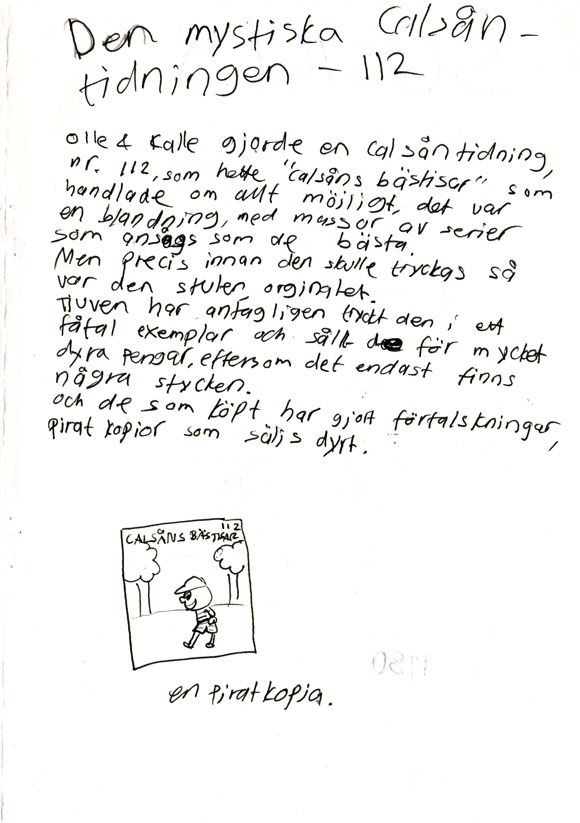 Den mystiska Calsån-
tidningen - 112
Olle & Kalle gjorde en calsåntidning,
nr. 112, som hette "calsåns bästisar" som
handlade om allt möjligt, det var
en blandning, med massor av serier
som ansågs som de bästa.
Men precis innan den skulle tryckas så
var den stulen orginalet.
Tjuven har antagligen tryckt den i ett
fåtal exemplar och sållt för mycket
dyra pengar, eftersom det endast finns
några stycken.
och de som köpt har gjort förfalskningar,
piratkopior som säljs dyrt.
112
CALSÅNS BÄSTISAR
1980
en piratkopia.